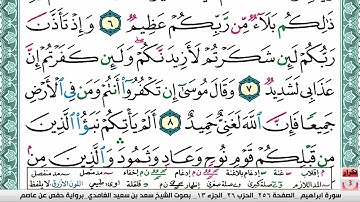 ذَٰلِكُم بَلَآءٌ مِّن رَّبِّكُمْ عَظِيمٌ ٦ وَإِذْ تَأَذَّنَ
رَبُّكُمْ لَئِن شَكَرْتُمْ لَأَزِيدَنَّكُمْ وَلَئِن كَفَرْتُمْ إِنَّ
عَذَابِى لَشَدِيدٌ ٧ وَقَالَ مُوسَىٰٓ إِن تَكْفُرُوٓا۟ أَنتُمْ وَمَن فِى ٱلْأَرْضِ
جَمِيعًا فَإِنَّ ٱللَّهَ لَغَنِىٌّ حَمِيدٌ ٨ أَلَمْ يَأْتِكُمْ نَبَؤُا۟ ٱلَّذِينَ
مِن قَبْلِكُمْ قَوْمِ نُوحٍ وَعَادٍ وَثَمُودَ وَٱلَّذِينَ مِنۢ
تكرار 3
سورة ابراهيم . الصفحة ٢٥٦ . الحزب ٢٦ . الجزء ١٣ . بصوت الشيخ سعد بن سعيد الغامدي . برواية حفص عن عاصم